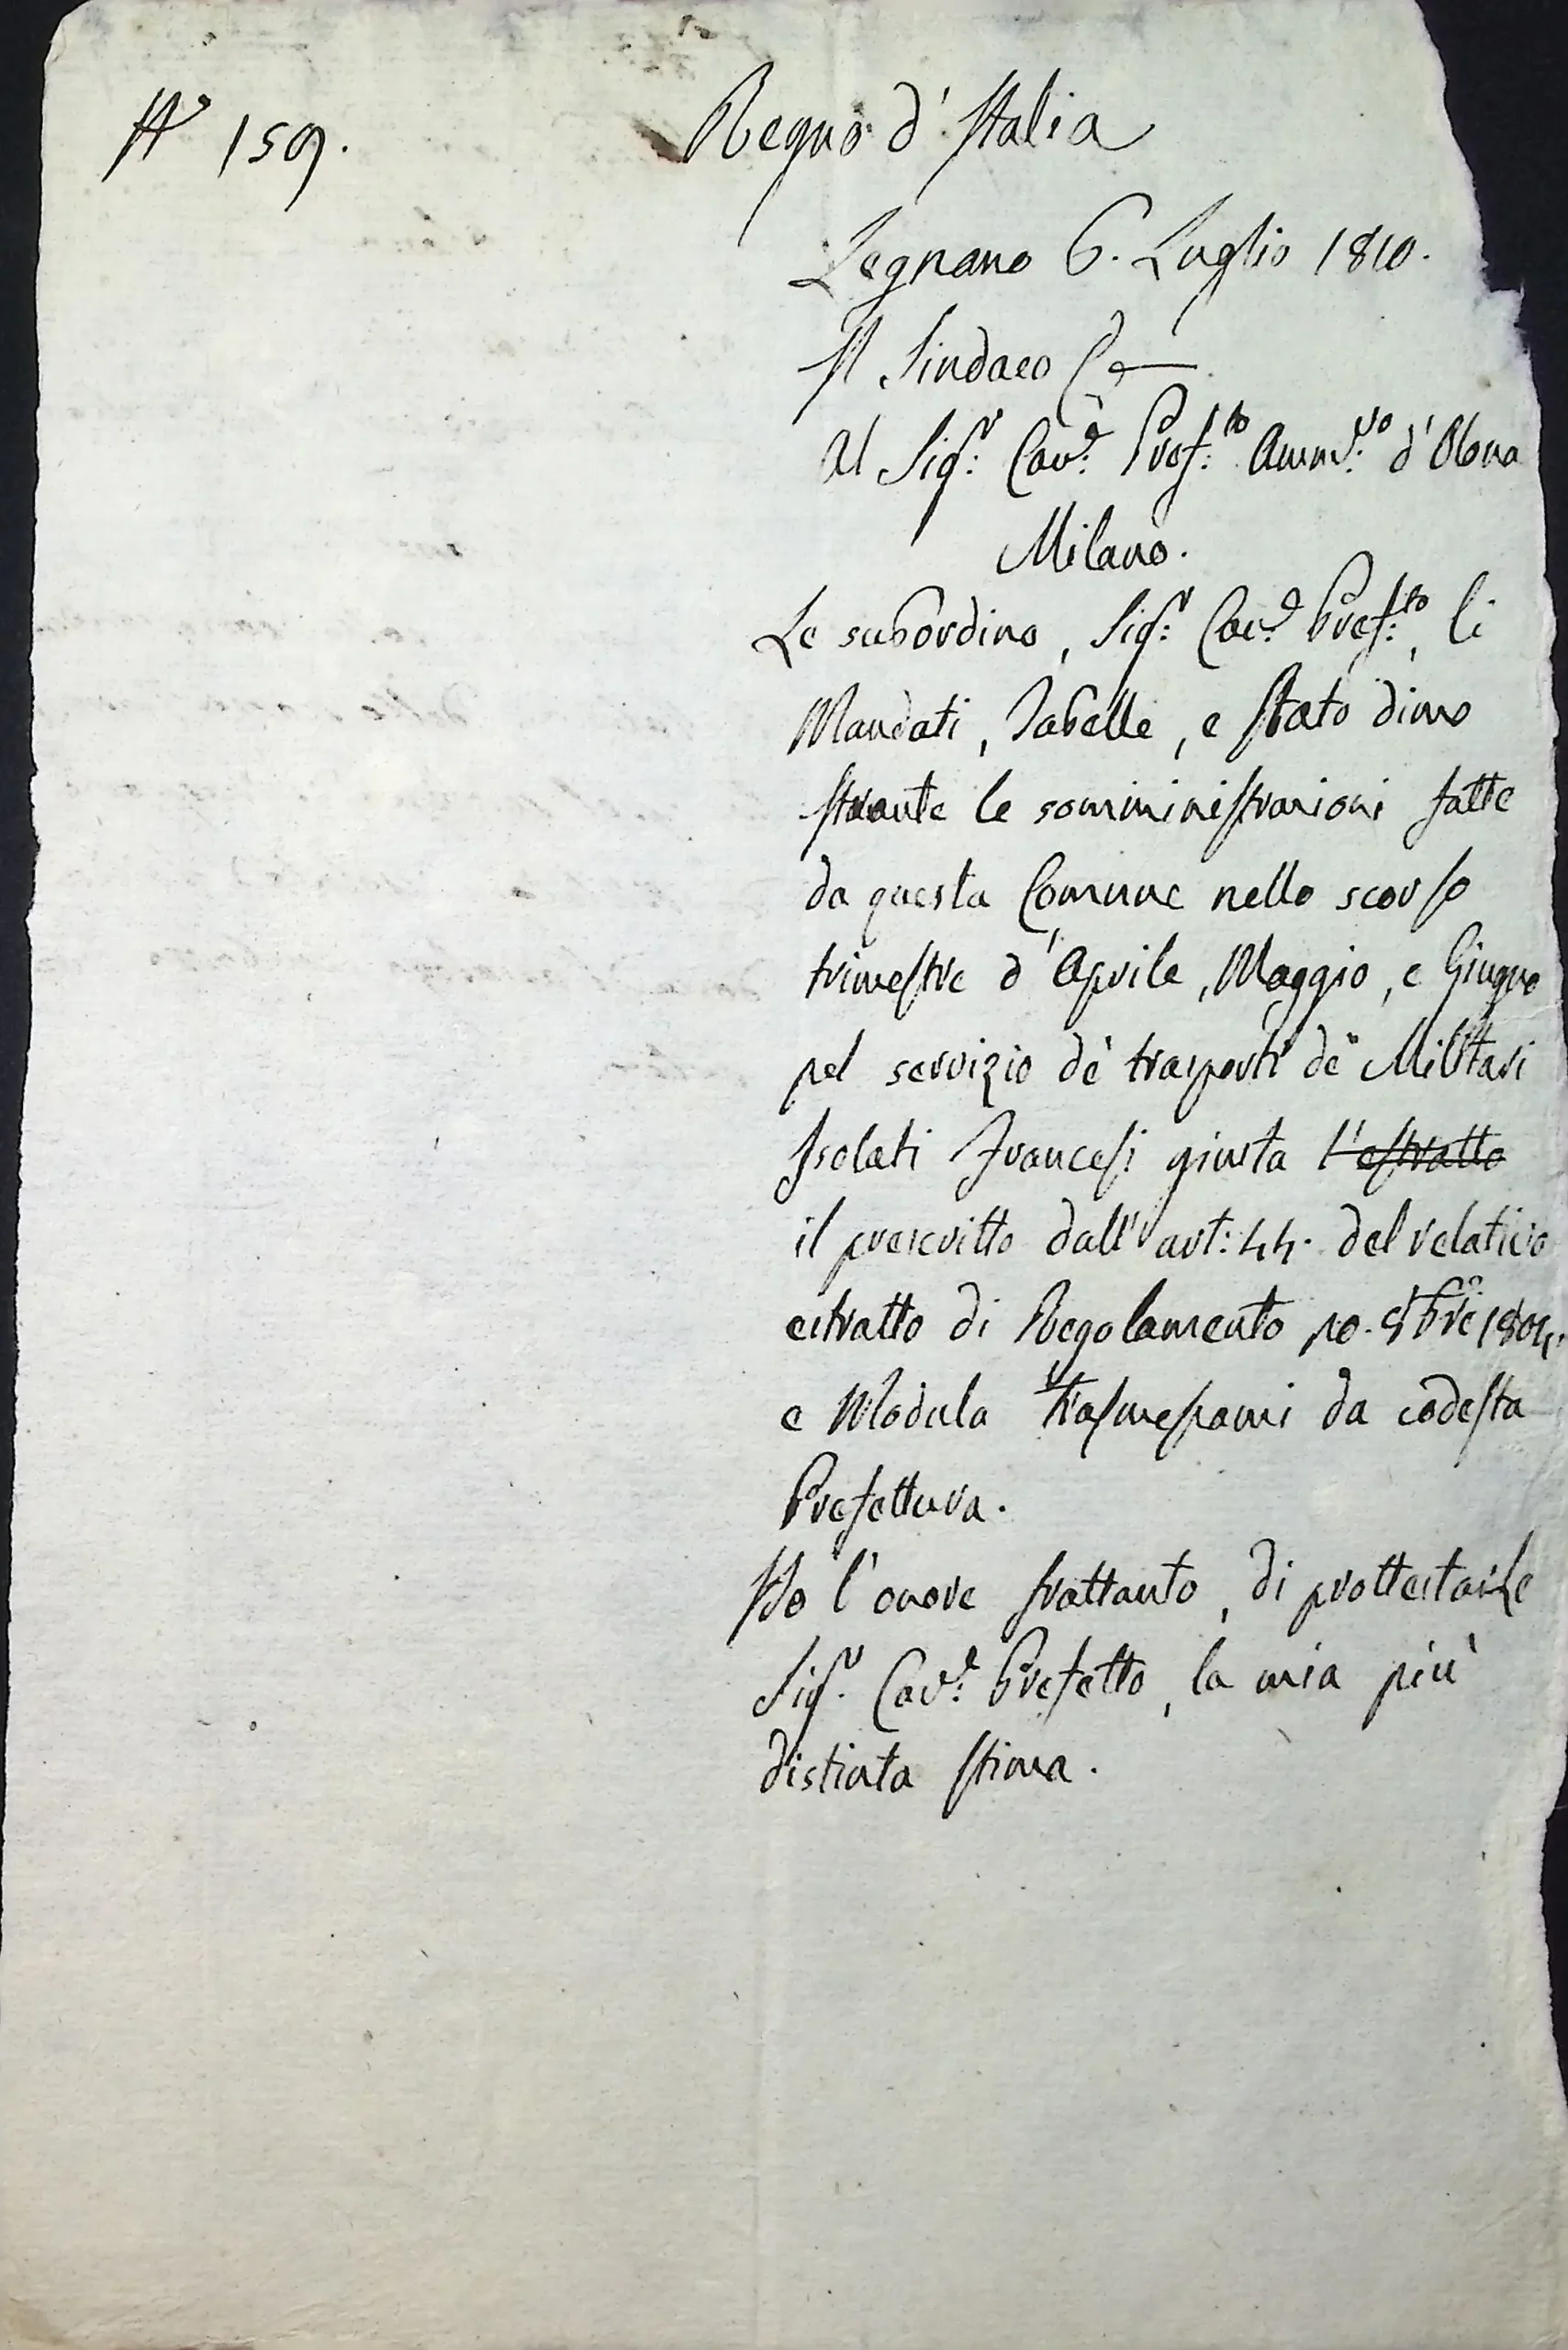 N.° 159.
Regno d'Italia
Legnano 6. Luglio 1810.
Il Sindaco
Al Sig.r Cav.e Pref.to Amm.vo d'Olona
Milano.
Le subordino, Sig.r Cav.e Pref.to, li
Mandati, Tabelle, e Stato dimo
strante le somministrazioni fatte
da questa Comune nello scorso
trimestre d'Aprile, Maggio, e Giugno
pel servizio de' trasporti de' Militari
Isolati Francesi giusta l'estratto
il prescritto dall'art: 44. del relativo
estratto di Regolamento po. 1804.
e Modula trasmessami da codesta
Prefettura.
Ho l'onore frattanto, di prottestarle
Sig.r Cav.e Prefetto, la mia più
distinta stima.